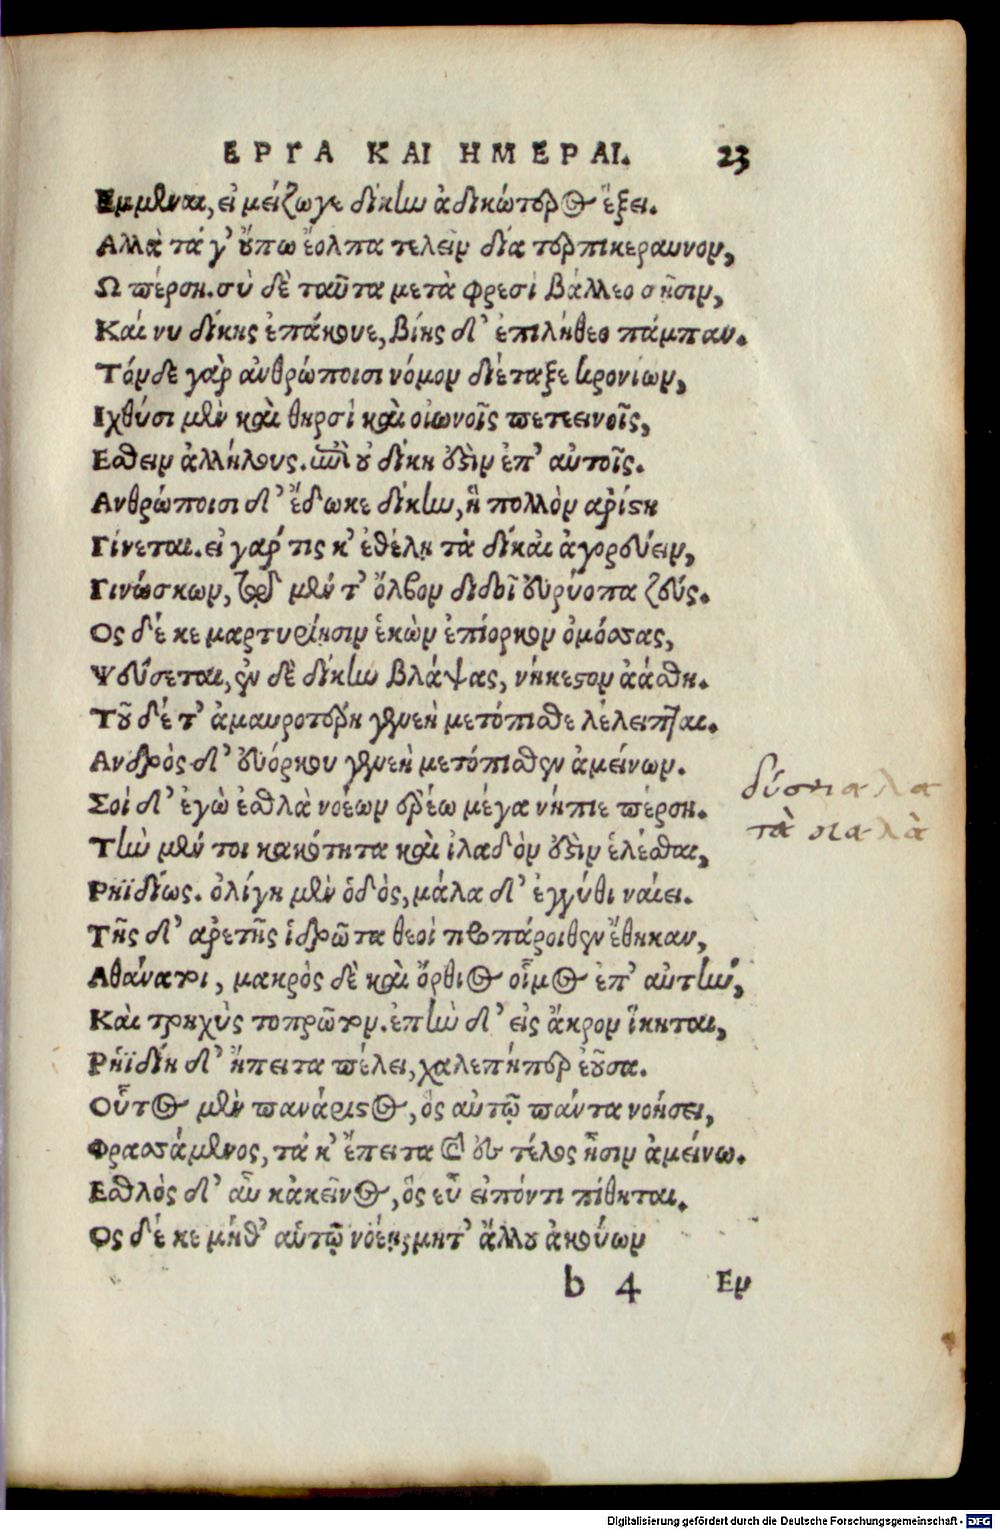 ΕΡΓΑ ΚΑΙ ΗΜΕΡΑΙ. 23
Εμμεναι, εἰ μείζωγε δίκην ἀδικώτερος ἕξει.
Αλλὰ τά γ' οὔπω ἔολπα τελεῖν δία τερπικεραυνον,
Ω πέρση. σὺ δὲ ταῦτα μετὰ φρεσὶ βάλλεο σῆσιν,
Καί νυ δίκης ἐπάκουε, βίης δ' ἐπιλήθεο πάμπαν.
Τόνδε γὰρ ἀνθρώποισι νόμον διέταξε κρονίων,
Ιχθύσι μὲν καὶ θηρσὶ καὶ οἰωνοῖς πετεεινοῖς,
Εσθειν ἀλλήλους. ἐπεὶ οὐ δίκη ἐστὶν ἐπ' αὐτοῖς.
Ανθρώποισι δ' ἔδωκε δίκην, ἣ πολλὸν αρίστη
Γίνεται. εἰ γαρ τις κ' ἐθέλῃ τὰ δίκαι ἀγορεύειν,
Γινώσκων, τῷ μέν τ' ὄλβον διδοῖ εὐρύοπα ζεύς.
Ος δέ κε μαρτυρίησιν ἑκὼν ἐπίορκον ὀμόσσας,
Ψεύσεται, ἐν δὲ δίκην βλάψας, νήκεστον ἀάσθη.
Τοῦ δέ τ' ἀμαυροτέρη γενεὴ μετόπισθε λέλειπται.
Ανδρὸς δ' εὐόρκου γενεὴ μετόπισθεν ἀμείνων.
Σοὶ δ' ἐγὼ ἐσθλὰ νοέων ἐρέω μέγα νήπιε πέρση.
Τὴν μέν τοι κακότητα καὶ ἰλαδὸν ἐστὶν ἑλέσθαι,
Ρηϊδίως. ὀλίγη μὲν ὁδὸς, μάλα δ' ἐγγύθι ναίει.
Τῆς δ' αρετῆς ἱδρῶτα θεοὶ προπάροιθεν ἔθηκαν,
Αθάνατοι, μακρὸς δὲ καὶ ὄρθιος οἶμος ἐπ' αὐτήν,
Καὶ τρηχὺς τοπρῶτον. ἐπὴν δ' εἰς ἄκρον ἵκηται,
Ρηϊδίη δ' ἤπειτα πέλει, χαλεπήπερ ἐοῦσα.
Οὗτος μὲν πανάριστος, ὃς αὐτῷ πάντα νοήσει,
Φρασσάμενος, τά κ' ἔπειτα καὶ ἐς τέλος ᾖσιν ἀμείνω.
Εσθλὸς δ' αὖ κἀκεῖνος, ὃς εὖ εἰπόντι πίθηται.
Ος δέ κε μήθ' αὑτῷ νοέῃ, μητ' ἄλλου ἀκούων
δύσκολα
τὰ καλὰ
b 4 Εν
Digitalisierung gefördert durch die Deutsche Forschungsgemeinschaft - DFG